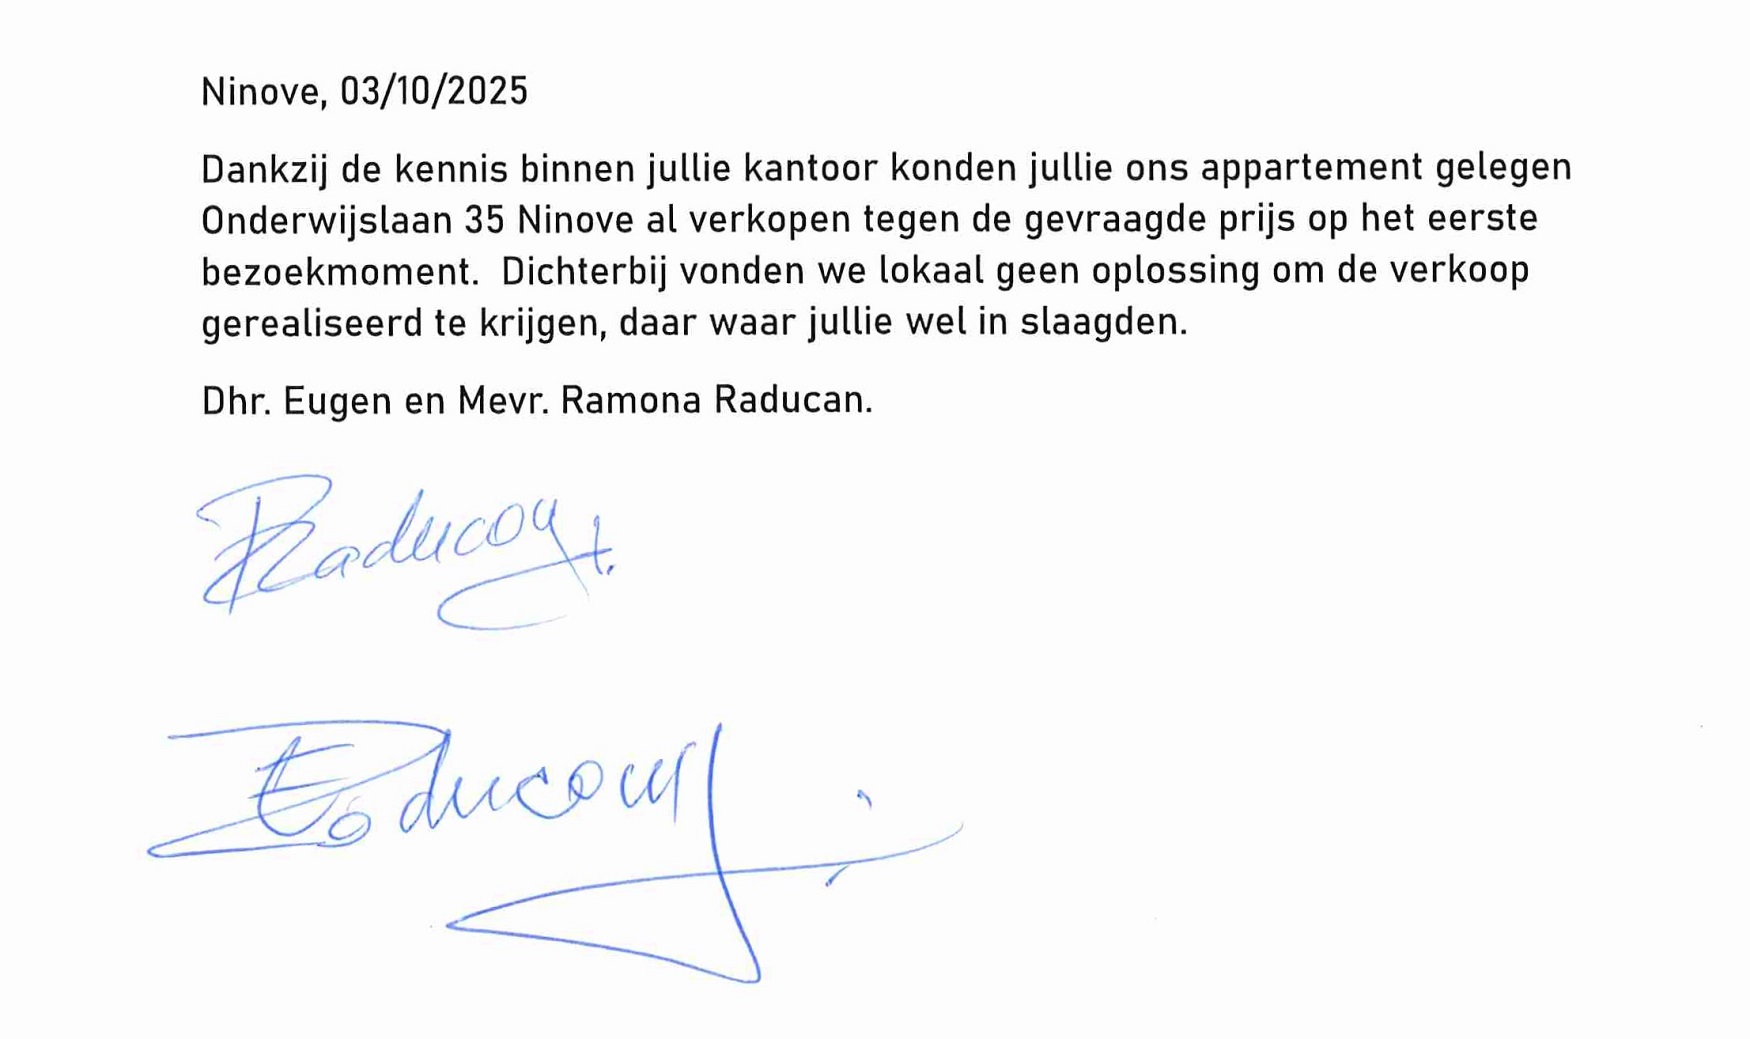 Ninove, 03/10/2025
Dankzij de kennis binnen jullie kantoor konden jullie ons appartement gelegen
Onderwijslaan 35 Ninove al verkopen tegen de gevraagde prijs op het eerste
bezoekmoment.  Dichterbij vonden we lokaal geen oplossing om de verkoop
gerealiseerd te krijgen, daar waar jullie wel in slaagden.
Dhr. Eugen en Mevr. Ramona Raducan.